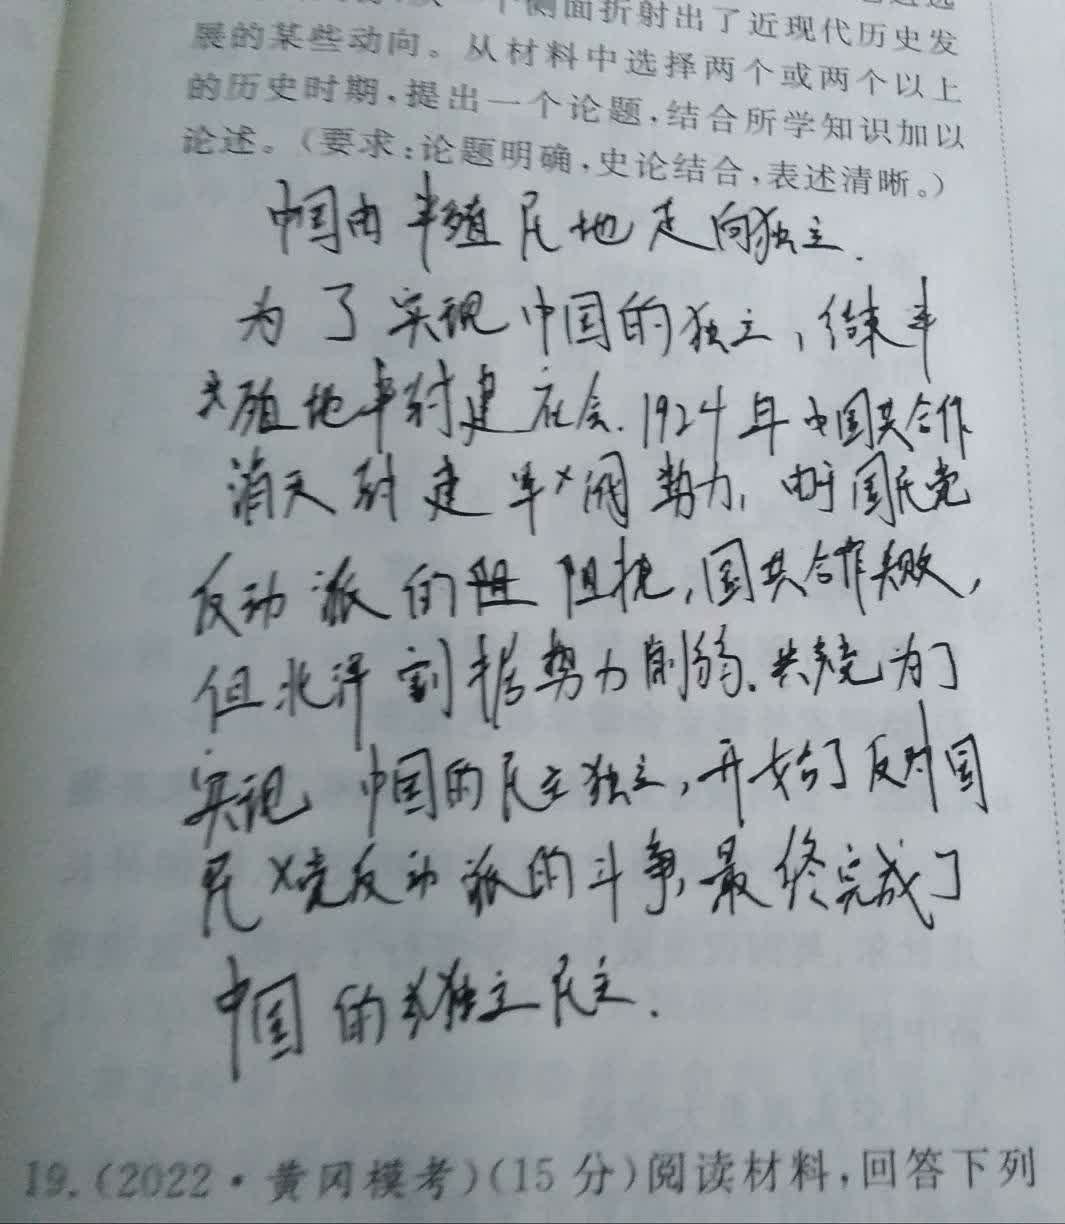 侧面折射出了近现代历史发
展的某些动向。从材料中选择两个或两个以上
的历史时期,提出一个论题,结合所学知识加以
论述。(要求:论题明确,史论结合,表述清晰。)
中国由半殖民地走向独立.
为了实现中国的独立,结束半
殖地半封建社会.1924年中国共合作
消灭封建军阀势力,由于国民党
反动派的阻挠,国共合作失败,
但北洋割据势力削弱.共党为了
实现中国的民主独立,开始了反对国
民党反动派的斗争,最终完成了
中国的独立民主.
19.(2022·黄冈模考)(15分)阅读材料,回答下列